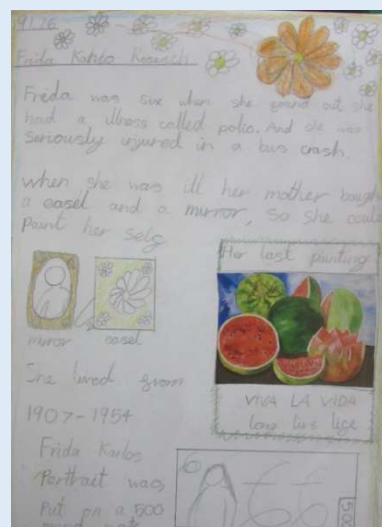 9.1.26
Frida Kahlo Research
Freda was six when she found out she
had a illness called polio. And she was
Seriously injured in a bus crash.
when she was ill her mother bough
a easel and a mirror, so she could
Paint her self
Her last painting
mirror easel
VIVA LA VIDA
long live life
She lived from
1907-1954
Frida Karlos
Portrait was
Put on a 500
500